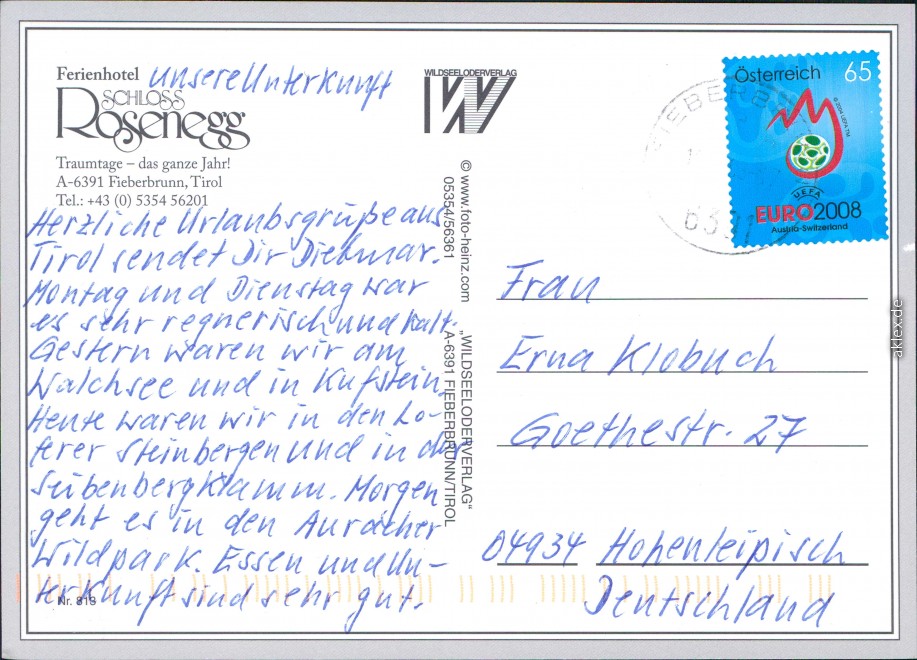 Ferienhotel
unsere Unterkunft
SCHLOSS
Rosenegg
Traumtage – das ganze Jahr!
A-6391 Fieberbrunn, Tirol
Tel.: +43 (0) 5354 56201
Herzliche Urlaubsgrüße aus
Tirol sendet Dir Dietmar.
Montag und Dienstag war
es sehr regnerisch und kalt.
Gestern waren wir am
Walchsee und in Kufstein.
Heute waren wir in den Lo-
ferer Steinbergen und in der
Seisenbergklamm. Morgen
geht es in den Auracher
Wildpark. Essen und Un-
terkunft sind sehr gut.
Nr. 813
WILDSEELODERVERLAG
W
© www.foto-heinz.com „WILDSEELODERVERLAG"
05354/56361 A-6391 FIEBERBRUNN/TIROL
FIEBERB
6391
Österreich 65
© 2004 UEFA TM
UEFA
EURO2008
Austria-Switzerland
Frau
Erna Klobuch
Goethestr. 27
04934 Hohenleipisch
Deutschland
akpool.de